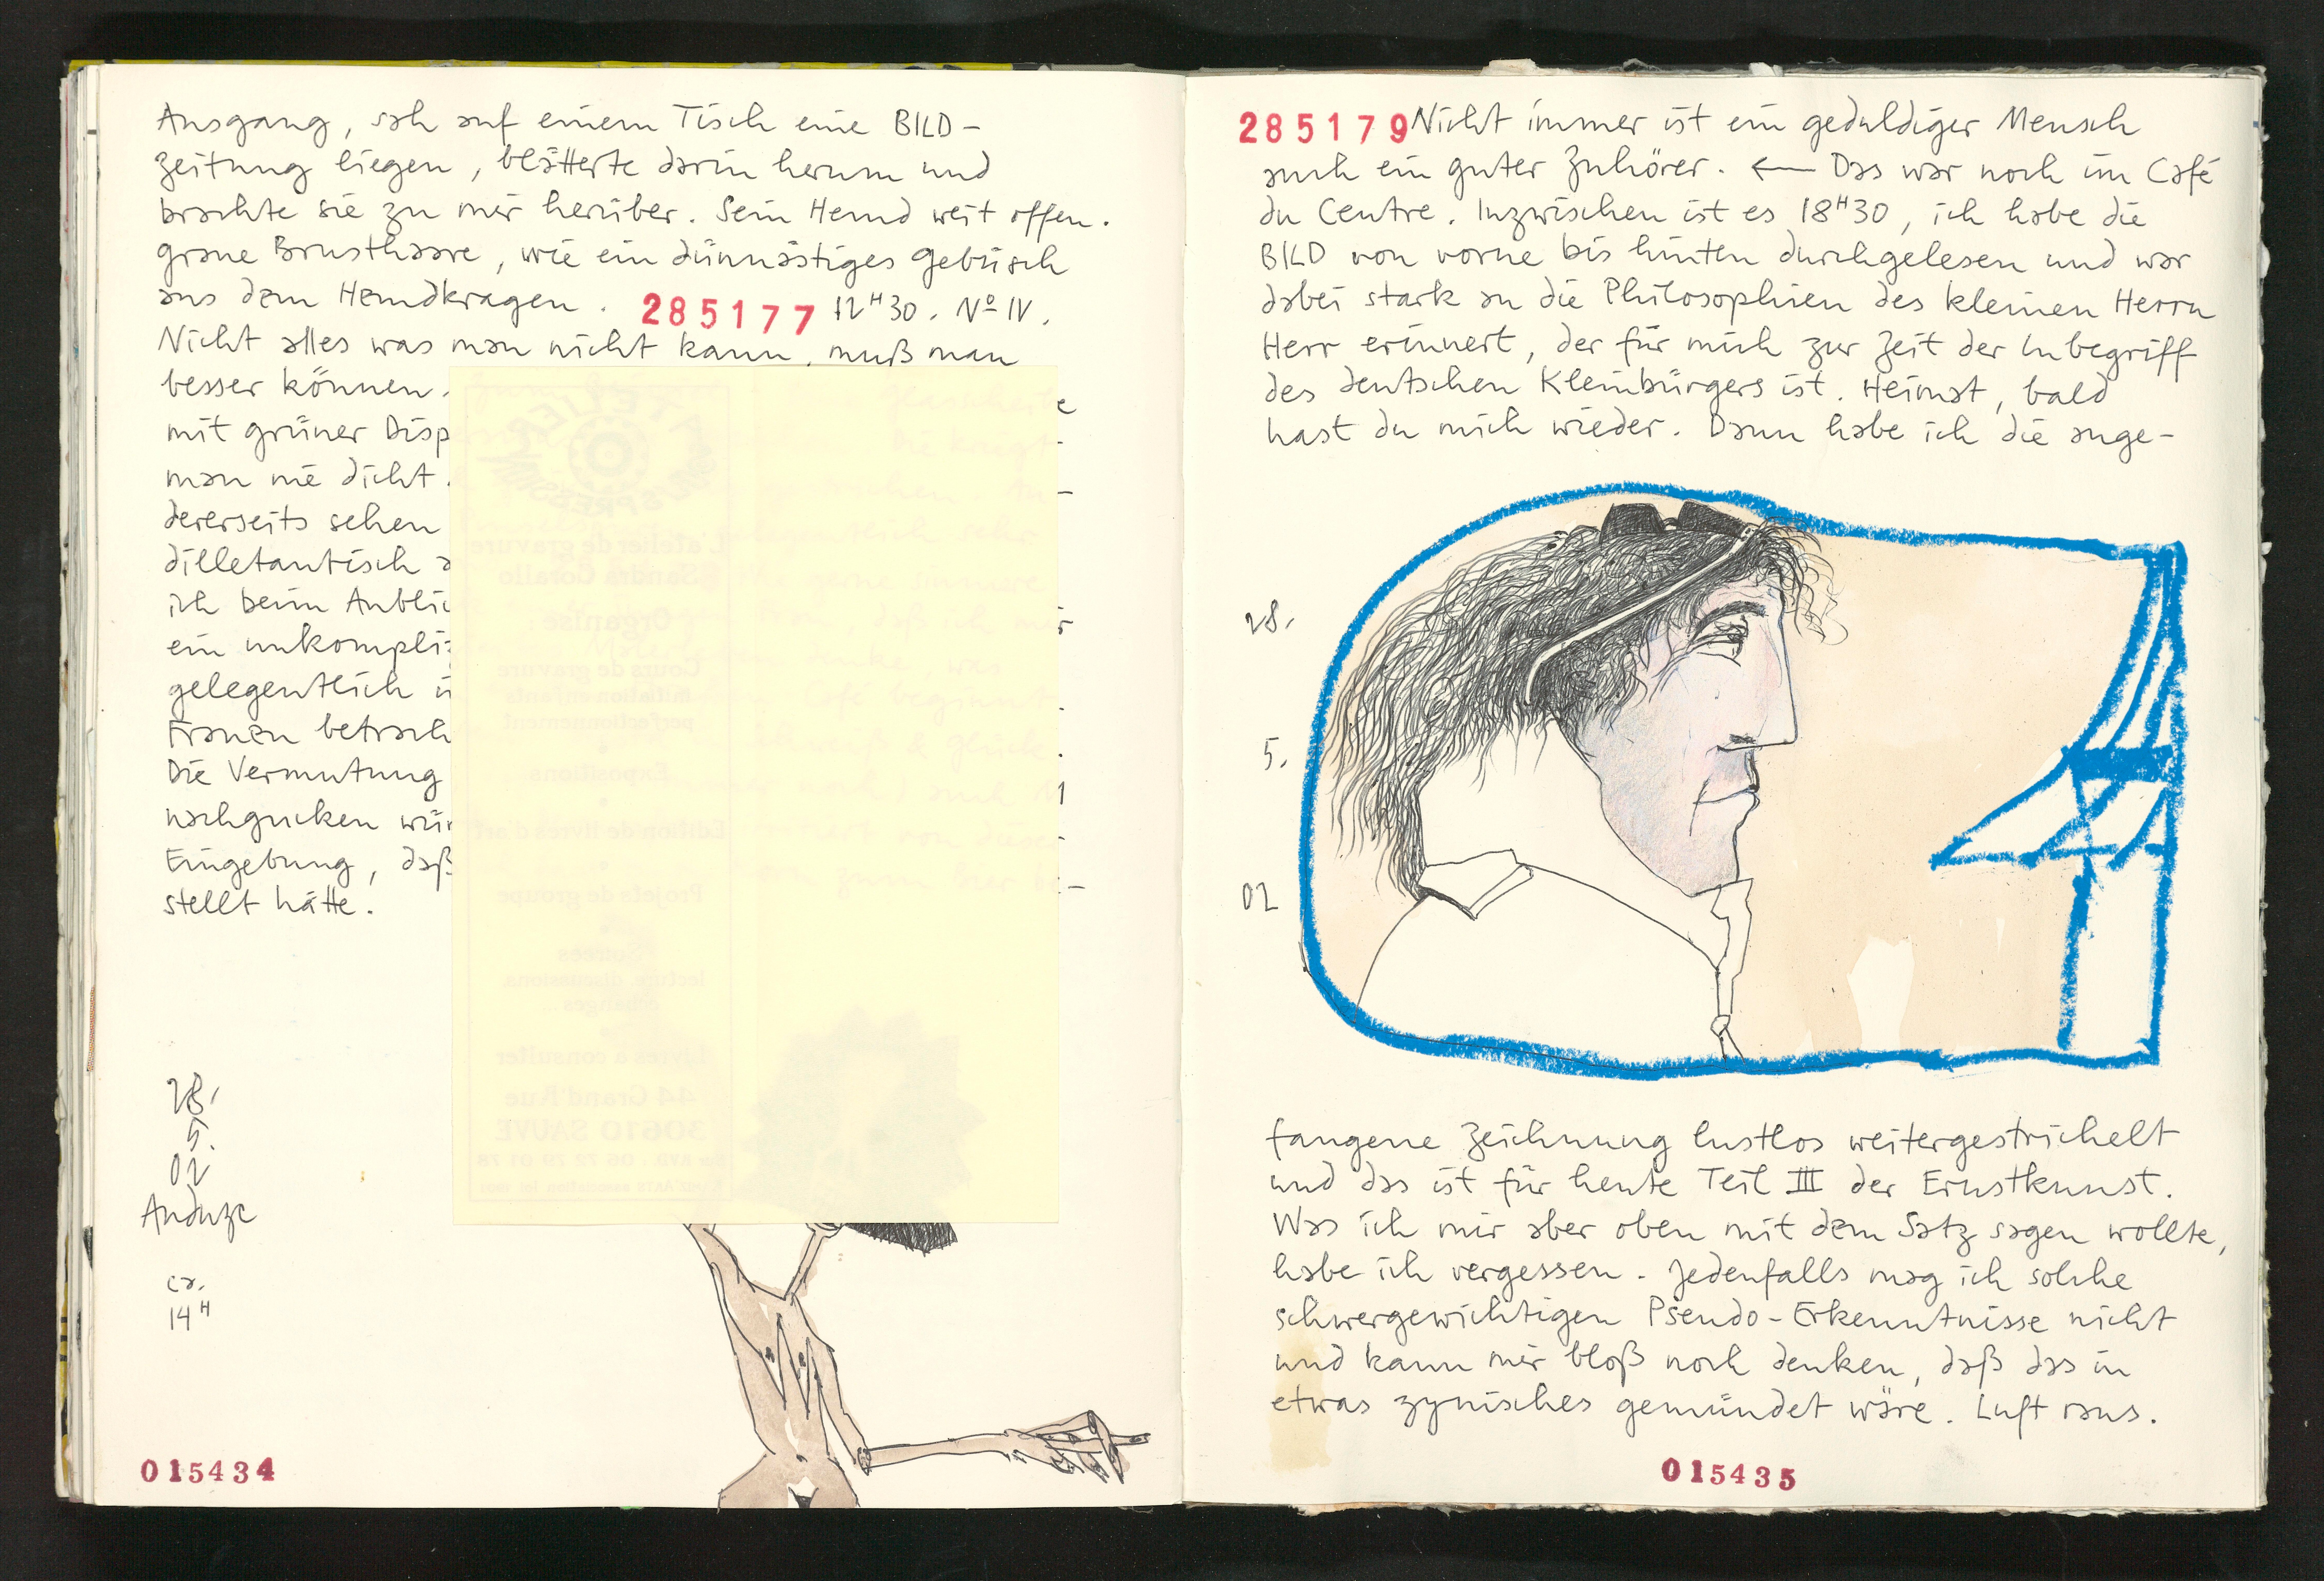 Ausgang, sah auf einem Tisch eine BILD-
zeitung liegen, blätterte darin herum und
brachte sie zu mir herüber. Sein Hemd weit offen.
graue Brusthaare, wie ein dünnästiges Gebüsch
aus dem Hemdkragen. 285177 12H30. No IV.
Nicht alles was man nicht kann, muß man
besser können.
mit grüner Disp
man nie dicht.
dererseits sehen
dilletantisch a
ich beim Anblic
ein unkompliz
gelegentlich
Frauen betrach
Die Vermutung
nachgucken wür
Eingebung, daß
stellt hätte.
ATELIER
L'atelier de gravure
Sandra Corallo
Organise:
Cours de gravure
initiation enfants
perfectionnement
Expositions
Edition de livres d'art
Projets de groupe
Soirées
lecture, discussions
échanges
Livres à consulter
44 Grand'Rue
30610 SAUVE
28.
5.
02
Anduze
ca.
14H
015434
285179 Nicht immer ist ein geduldiger Mensch
auch ein guter Zuhörer. ← Das war noch im Café
du Centre. Inzwischen ist es 18H30, ich habe die
BILD von vorne bis hinten durchgelesen und war
dabei stark an die Philosophien des kleinen Herrn
Herr erinnert, der für mich zur Zeit der Inbegriff
des deutschen Kleinbürgers ist. Heimat, bald
hast du mich wieder. Dann habe ich die ange-
28.
5.
02
fangene Zeichnung lustlos weitergestrichelt
und das ist für heute Teil III der Ernstkunst.
Was ich mir aber oben mit dem Satz sagen wollte,
habe ich vergessen. Jedenfalls mag ich solche
schwergewichtigen Pseudo-Erkenntnisse nicht
und kann mir bloß noch denken, daß das in
etwas zynisches gemündet wäre. Luft raus.
015435